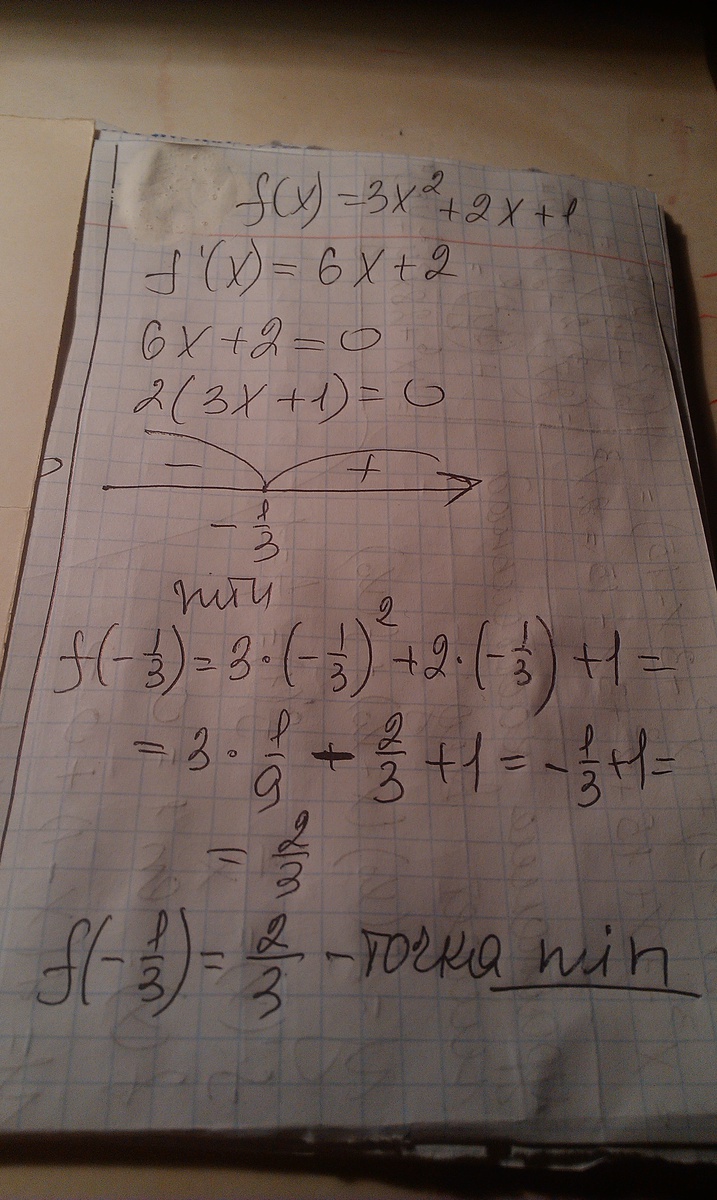 f(x) = 3x² + 2x + 1
f'(x) = 6x + 2
6x + 2 = 0
2(3x + 1) = 0
− +
− 1/3
min
f(−1/3) = 3·(−1/3)² + 2·(−1/3) + 1 =
= 3 · 1/9 − 2/3 + 1 = −1/3 + 1 =
= 2/3
f(−1/3) = 2/3 − точка min